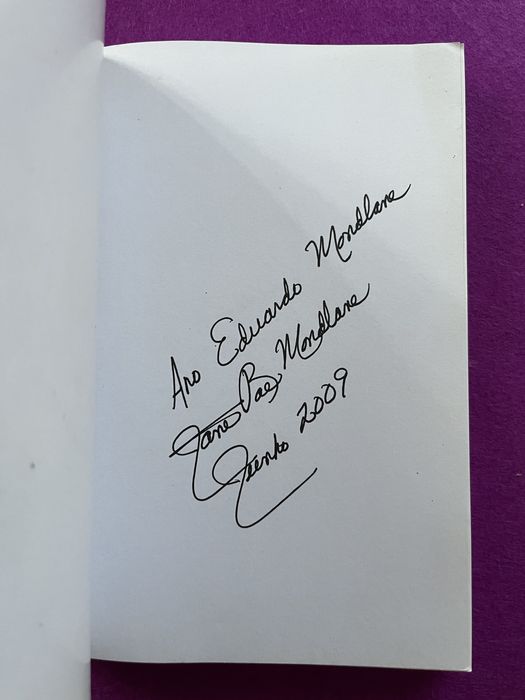 Ano Eduardo Mondlane
Janet Rae Mondlane
Junho 2009